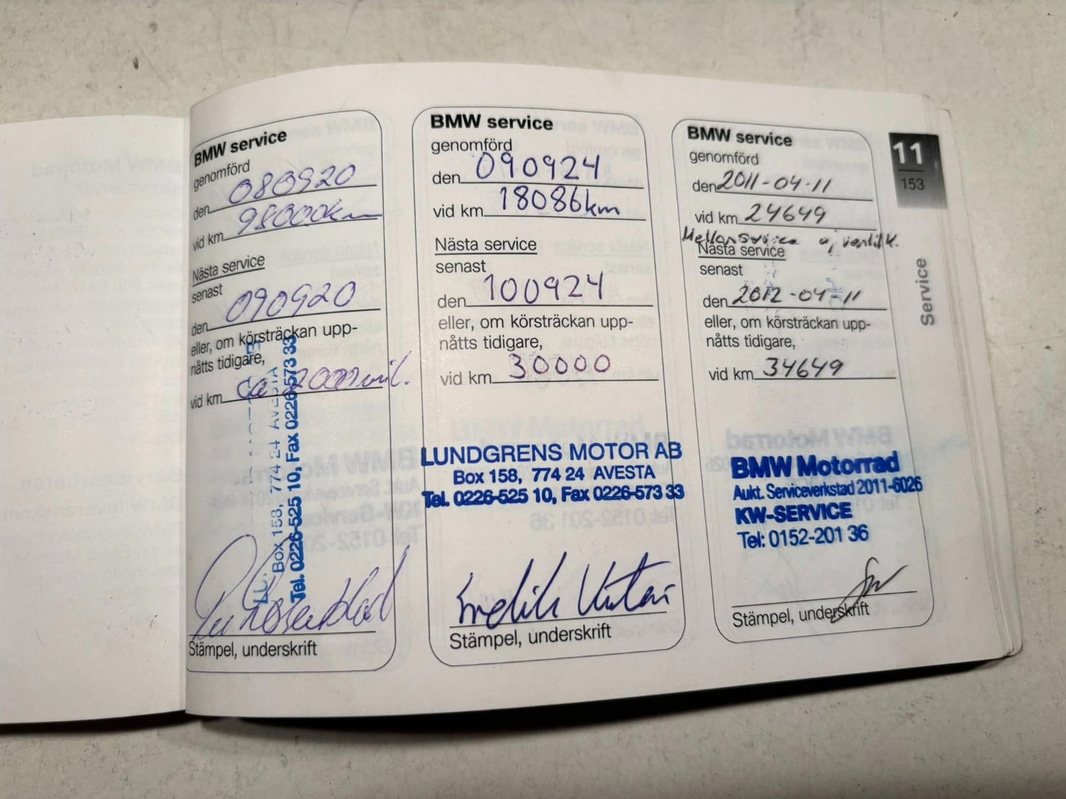 BMW service
genomförd
den 080920
vid km
Nästa service
senast
den 090920
eller, om körsträckan upp-
nåtts tidigare,
vid km ca
Box 158, 774 24 AVESTA
Tel. 0226-525 10, Fax 0226-573 33
Stämpel, underskrift
BMW service
genomförd
den 090924
vid km 18086km
Nästa service
senast
den 100924
eller, om körsträckan upp-
nåtts tidigare,
vid km 30000
LUNDGRENS MOTOR AB
Box 158, 774 24 AVESTA
Tel. 0226-525 10, Fax 0226-573 33
Stämpel, underskrift
BMW service
genomförd
den 2011-04-11
vid km 24649
Mellanservice
Nästa service
senast
den 2012-04-11
eller, om körsträckan upp-
nåtts tidigare,
vid km 34649
BMW Motorrad
Aukt. Serviceverkstad 2011-6026
KW-SERVICE
Tel: 0152-201 36
Stämpel, underskrift
11
153
Service